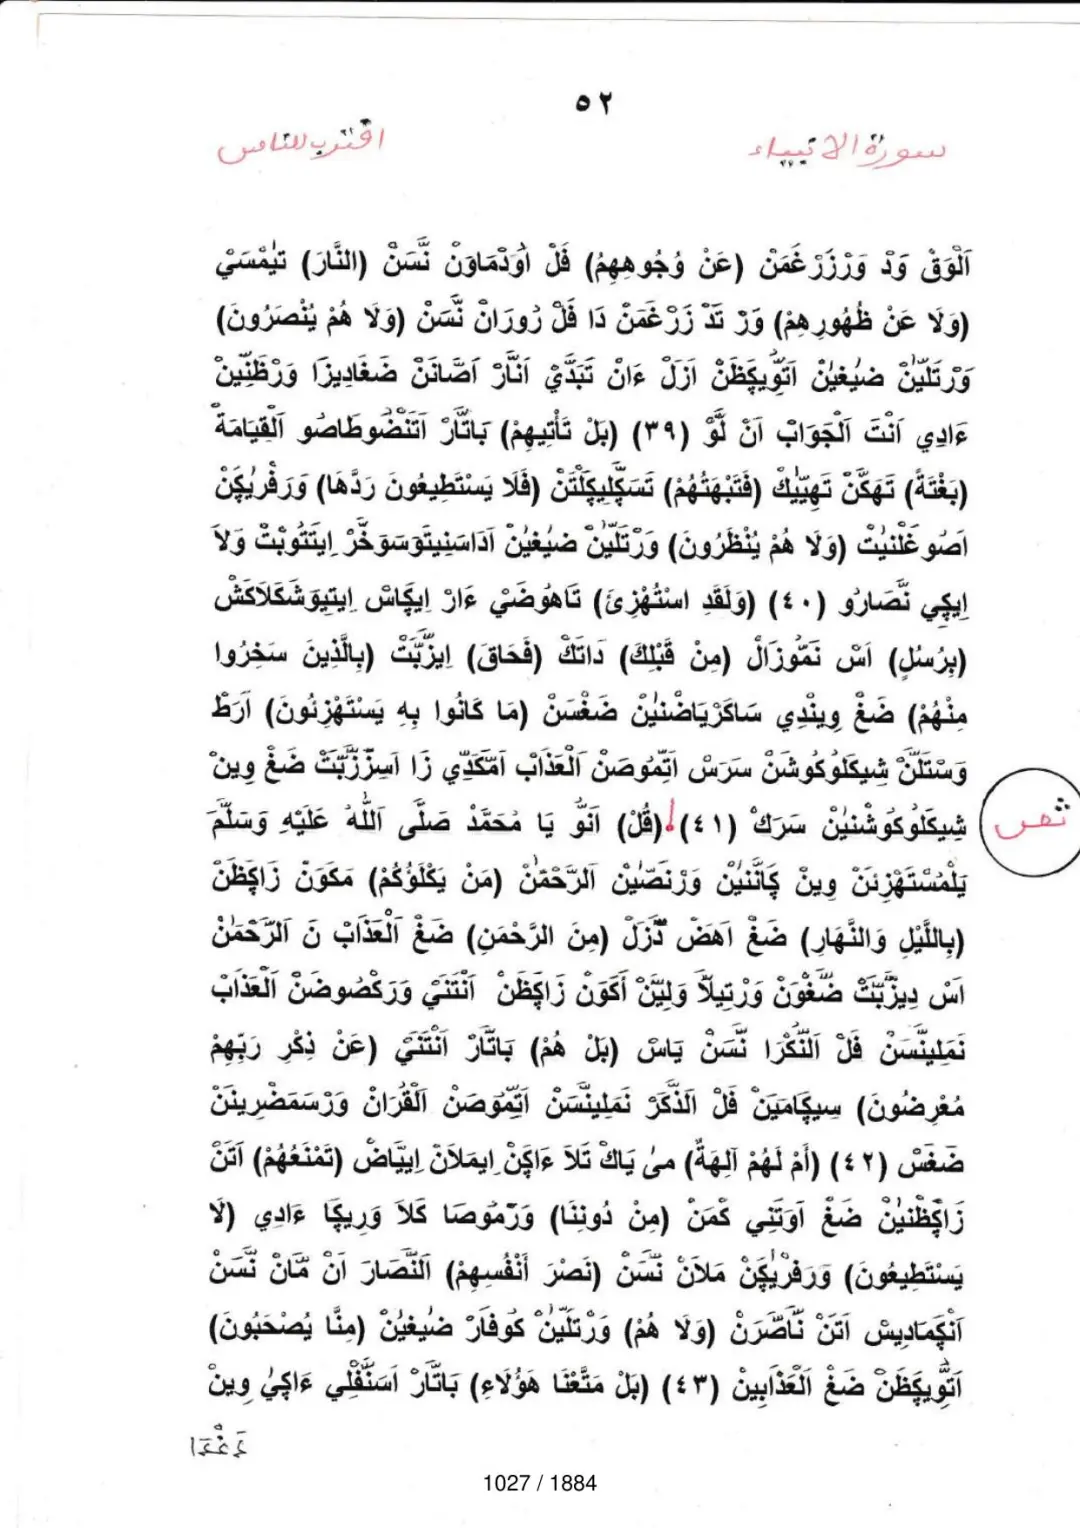 ٥٢
سورة الانبياء
اقترب للناس
اَلْوَقْ وَدْ وَرْزَرْغَمَنْ (عَنْ وُجُوهِهِمُ) فَلْ اُوَدْمَاوَنْ نَّسَنْ (النَّارَ) تِيٰمْسَيْ
(وَلَا عَنْ ظُهُورِهِمْ) وَرْ تَدْ زَرْغَمَنْ دَا فَلْ رُورَانْ نَّسَنْ (وَلَا هُمْ يُنْصَرُونَ)
وَرْتَلَّيْنْ ضِيٰغَيْنْ اَتَّوِيكَظَنْ اَزَلْ ءَانْ تَبَدَّيْ اَنَّارْ اَصَّانَنْ ضَغَادِيزَا وَرْظَنِّينْ
ءَادِي اَنْتَ اَلْجَوَابْ اَنْ لَّوْ (٣٩) (بَلْ تَأْتِيهِمْ) بَاتَّارْ اَتَنْضُوطَاصُو اَلْقِيَامَةْ
(بَغْتَةً) تَهَكَّنْ تَهِيّٰيكْ (فَتَبْهَتُهُمْ) تَسَكَّلِيكَلْتَنْ (فَلَا يَسْتَطِيعُونَ رَدَّهَا) وَرَفْرِيٰكَنْ
اَصُوغَلْنِيٰتْ (وَلَا هُمْ يُنْظَرُونَ) وَرْتَلَّيْنْ ضِيٰغَيْنْ اَدَاسَنِيتَوَسَوَخَّرْ اِيتَتُوبْتْ وَلَا
اِيكِي نَّصَارُو (٤٠) (وَلَقَدِ اسْتُهْزِئَ) تَاهُوضَيْ ءَارْ اِيكَاسْ اِيتِيوَشَكَلَاكَشْ
(بِرُسُلٍ) اَسْ نَمُّوزَالْ (مِنْ قَبْلِكَ) دَاتَكْ (فَحَاقَ) اِيزَّبَّتْ (بِالَّذِينَ سَخِرُوا
مِنْهُمْ) ضَغْ وِينْدِي سَاكَزْيَاضْنَيْنْ ضَغْسَنْ (مَا كَانُوا بِهِ يَسْتَهْزِئُونَ) اَرَطْ
وَسْتَلَّنْ شِيكَلُوكُوشَنْ سَرَسْ اَتَّمُوصَنْ اَلْعَذَابْ اَمَّكَدِّي زَا اَسِزَّزَّبَّتْ ضَغْ وِينْ
شِيكَلُوكُوشْنَيْنْ سَرَكْ (٤١) (قُلْ) اَنَّوْ يَا مُحَمَّدْ صَلَّى اَللّٰهُ عَلَيْهِ وَسَلَّمَ
يَلْمُسْتَهْزِئَنْ وِينْ كَانَّنَيْنْ وَرْنَصَّيْنْ اَلرَّحْمٰنْ (مَنْ يَكْلَؤُكُمْ) مَكَوَنْ زَاكَظَنْ
(بِاللَّيْلِ وَالنَّهَارِ) ضَغْ اَهَضْ دَّزَلْ (مِنَ الرَّحْمَنِ) ضَغْ اَلْعَذَابْ نَ اَلرَّحْمٰنْ
اَسْ دِيزَّبَّتْ ضَّغْوَنْ وَرْتِيلَا وَلَيَّنْ اَكَوَنْ زَاكَظَنْ اَنْتَنَيْ وَرَكْصُوضَنْ اَلْعَذَابْ
نَمَلِينَّسَنْ فَلْ اَلنَّكْرَا نَّسَنْ يَاسْ (بَلْ هُمْ) بَاتَّارْ اَنْتَنَيْ (عَنْ ذِكْرِ رَبِّهِمْ
مُعْرِضُونَ) سِيكَامَيَنْ فَلْ اَلذَّكَرْ نَمَلِينَّسَنْ اَتَّمُوصَنْ اَلْقُرَانْ وَرْسَمَضْرِينَنْ
ضَغَسْ (٤٢) (أَمْ لَهُمْ آلِهَةٌ) مَىْ يَاكْ تَلَا ءَاكَنْ اِيمَلَانْ اِييَّاضْ (تَمْنَعُهُمْ) اَتَنْ
زَاكَظْنَيْنْ ضَغْ اَوَتَنِي كَمَنْ (مِنْ دُونِنَا) وَرْمُوصَا كَلَا وَرِيكَا ءَادِي (لَا
يَسْتَطِيعُونَ) وَرَفْرِيٰكَنْ مَلَانْ نَّسَنْ (نَصْرَ أَنْفُسِهِمْ) اَلنَّصَارْ اَنْ مَّانْ نَّسَنْ
اَنْكَمَادِيسْ اَتَنْ نَّاصَّرَنْ (وَلَا هُمْ) وَرْتَلَّيْنْ كُوفَارْ ضِيٰغَيْنْ (مِنَّا يُصْحَبُونَ)
اَتَّوِيكَظَنْ ضَغْ اَلْعَذَابِينْ (٤٣) (بَلْ مَتَّعْنَا هَؤُلَاءِ) بَاتَّارْ اَسَنَّفْلِي ءَاكِيْ وِينْ
ثمن
1027 / 1884